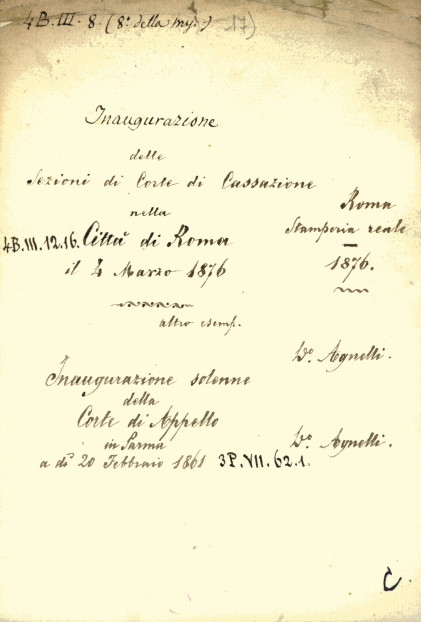 4B.III.8. (8° della my.) 17)
Inaugurazione
delle
Sezioni di Corte di Cassazione
nella
4B.III.12.16. Città di Roma
il 4 Marzo 1876
Roma
Stamperia reale
1876.
altro esemp.
D° Agnelli.
Inaugurazione solenne
della
Corte di Appello
in Parma
a dì 20 Febbraio 1861 3P.VII.62.1.
D° Agnelli.
C.